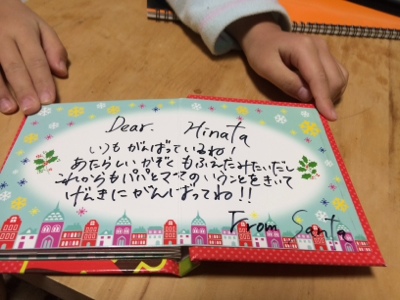 Dear. Hinata
いつもがんばっているね!
あたらしいかぞくもふえたみたいだし
これからもパパとママのいうことをきいて
げんきにがんばってね!!
From Santa